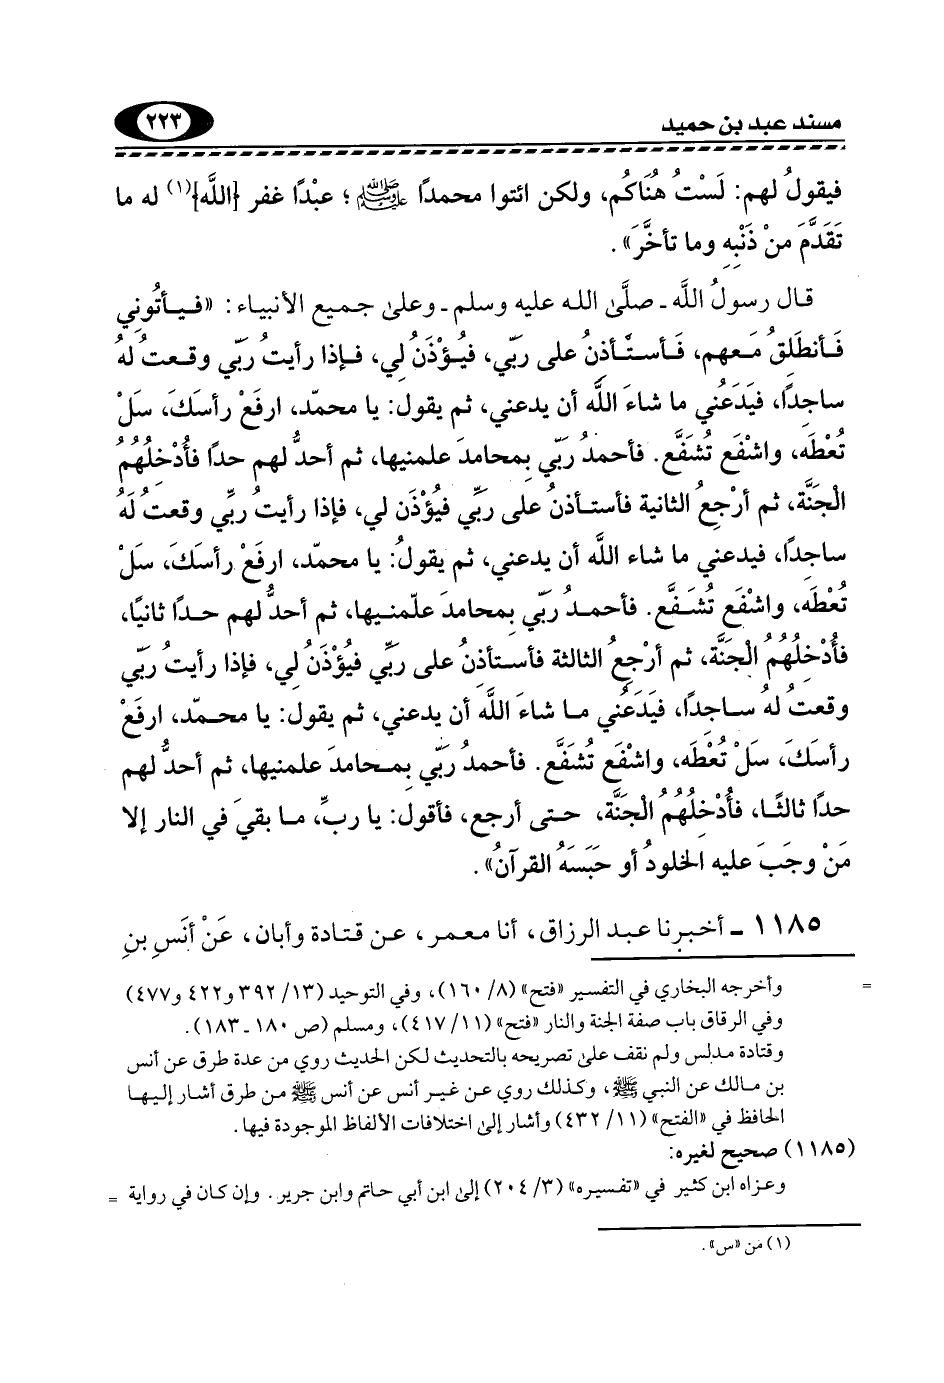 مسند عبد بن حميد ٢٢٣
فيقولُ لهم: لَسْتُ هُنَاكُم، ولكن ائتوا محمدًا ﷺ؛ عبْدًا غفر [اللَّه](١) له ما
تَقَدَّمَ مِنْ ذَنْبِهِ وما تأخَّرَ».
قال رسولُ اللَّه ـ صلَّى الله عليه وسلم ـ وعلى جميع الأنبياء: «فيأتُوني
فَأنطَلِقُ مَعهم، فَأستَأذنُ على ربّي، فيُؤْذَنُ لي، فإذا رأيتُ ربّي وقعتُ لهُ
ساجِدًا، فيَدَعُني ما شاءَ اللَّه أن يدعني، ثم يقول: يا محمّد، ارفَعْ رأسَكَ، سَلْ
تُعْطَه، واشْفَع تُشَفَّع. فأحمدُ ربّي بِمحامدَ علمنيها، ثم أحدُّ لهم حدًا فأُدْخِلُهُمُ
الْجَنَّةَ، ثم أرْجِعُ الثانية فأستأذنُ على ربِّي فَيُؤْذَن لي، فإذا رأيتُ ربِّي وقعتُ لَهُ
ساجدًا، فيدعني ما شاء اللَّه أن يدعني، ثم يقولُ: يا محمّد، ارفَعْ رأسَكَ، سَلْ
تُعْطَه، واشْفَع تُشَفَّع. فأحمدُ ربّي بِمحامدَ علّمنيها، ثم أحدُّ لهم حدًا ثانيًا،
فأُدْخِلُهُمُ الْجَنَّةَ، ثم أرْجِعُ الثالثة فأستأذنُ على ربِّي فيُؤْذَنُ لي، فإذا رأيتُ ربّي
وقعتُ لهُ ساجِدًا، فيَدَعُني ما شاءَ اللَّه أن يدعني، ثم يقول: يا محمّد، ارفَعْ
رأسَكَ، سَلْ تُعْطَه، واشْفَع تُشَفَّع. فأحمدُ ربّي بِمحامدَ علمنيها، ثم أحدُّ لهم
حدًا ثالثًا، فأُدْخِلُهُمُ الْجَنَّةَ، حتى أرجع، فأقول: يا ربِّ، ما بقيَ في النار إلا
مَنْ وجَبَ عليه الخلودُ أو حَبَسَهُ القرآنُ».
١١٨٥ ـ أخبرنا عبد الرزاق، أنا معمر، عن قتادة وأبان، عَنْ أنَسِ بنِ
= وأخرجه البخاري في التفسير «فتح» (٨/ ١٦٠)، وفي التوحيد (١٣/ ٣٩٢ و٤٢٢ و٤٧٧)
وفي الرقاق باب صفة الجنة والنار «فتح» (١١/ ٤١٧)، ومسلم (ص ١٨٠ ـ ١٨٣).
وقتادة مدلس ولم نقف على تصريحه بالتحديث لكن الحديث روي من عدة طرق عن أنس
بن مالك عن النبي ﷺ، وكذلك روي عن غير أنس عن أنس ﷺ من طرق أشار إليها
الحافظ في «الفتح» (١١/ ٤٣٢) وأشار إلى اختلافات الألفاظ الموجودة فيها.
(١١٨٥) صحيح لغيره:
وعزاه ابن كثير في «تفسيره» (٣/ ٢٠٤) إلى ابن أبي حاتم وابن جرير. وإن كان في رواية =
(١) من «س».